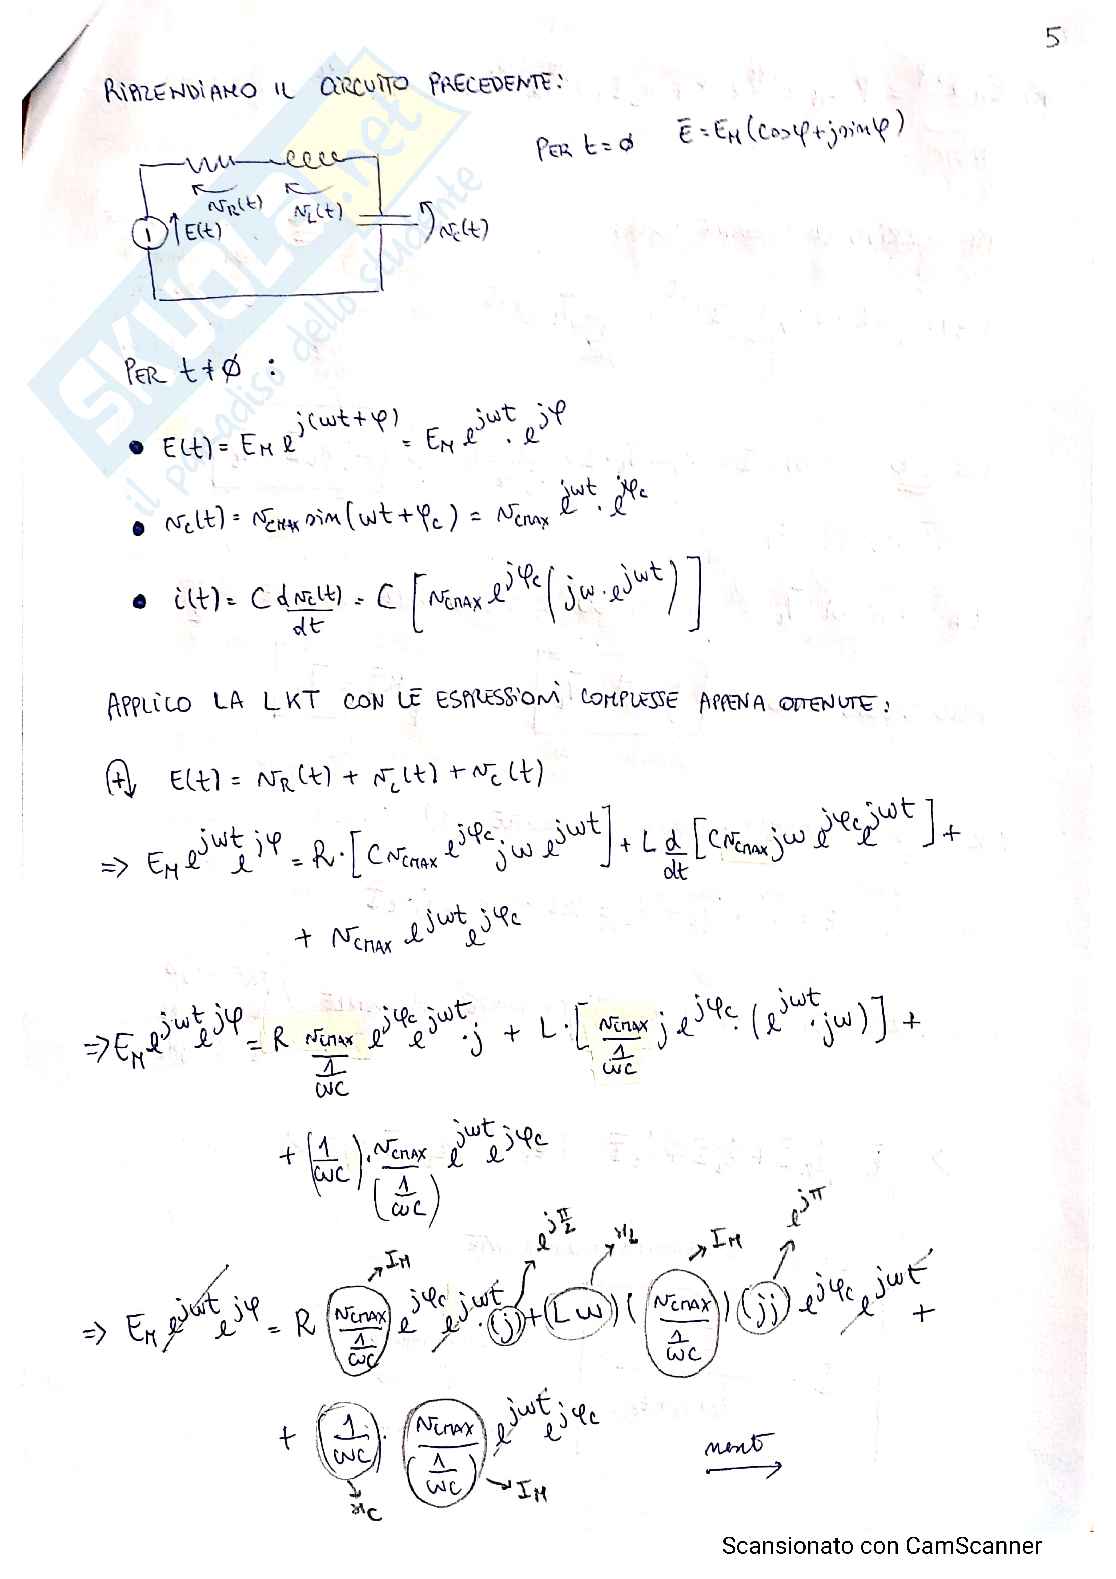 5
RIPRENDIAMO IL CIRCUITO PRECEDENTE:
PER t=∅ Ē = E_M (cosφ + j sinφ)
v_R(t) v_L(t)
E(t) v_C(t)
SKUOLA.net
il paradiso dello studente
PER t≠∅ :
• E(t) = E_M e^{j(ωt+φ)} = E_M e^{jωt} · e^{jφ}
• v_C(t) = v_{CMAX} sin(ωt+φ_C) = v_{CMAX} e^{jωt} · e^{jφ_C}
• i(t) = C dv_C(t)/dt = C [v_{CMAX} e^{jφ_C} (jω · e^{jωt})]
APPLICO LA LKT CON LE ESPRESSIONI COMPLESSE APPENA OTTENUTE:
(+) E(t) = v_R(t) + v_L(t) + v_C(t)
=> E_M e^{jωt} e^{jφ} = R · [C v_{CMAX} e^{jφ_C} jω e^{jωt}] + L d/dt [C v_{CMAX} jω e^{jφ_C} e^{jωt}] +
+ v_{CMAX} e^{jωt} e^{jφ_C}
=> E_M e^{jωt} e^{jφ} = R v_{CMAX}/(1/ωC) e^{jφ_C} e^{jωt} · j + L · [v_{CMAX}/(1/ωC) j e^{jφ_C} · (e^{jωt} · jω)] +
+ (1/ωC) · v_{CMAX}/(1/ωC) e^{jωt} e^{jφ_C}
I_M e^{jπ/2} x_L I_M e^{jπ}
=> E_M e^{jωt} e^{jφ} = R (v_{CMAX}/(1/ωC)) e^{jφ_C} e^{jωt} · (j) + (Lω) (v_{CMAX}/(1/ωC)) (jj) e^{jφ_C} e^{jωt} +
+ (1/ωC) · (v_{CMAX}/(1/ωC)) e^{jωt} e^{jφ_C}
x_C I_M
next
Scansionato con CamScanner